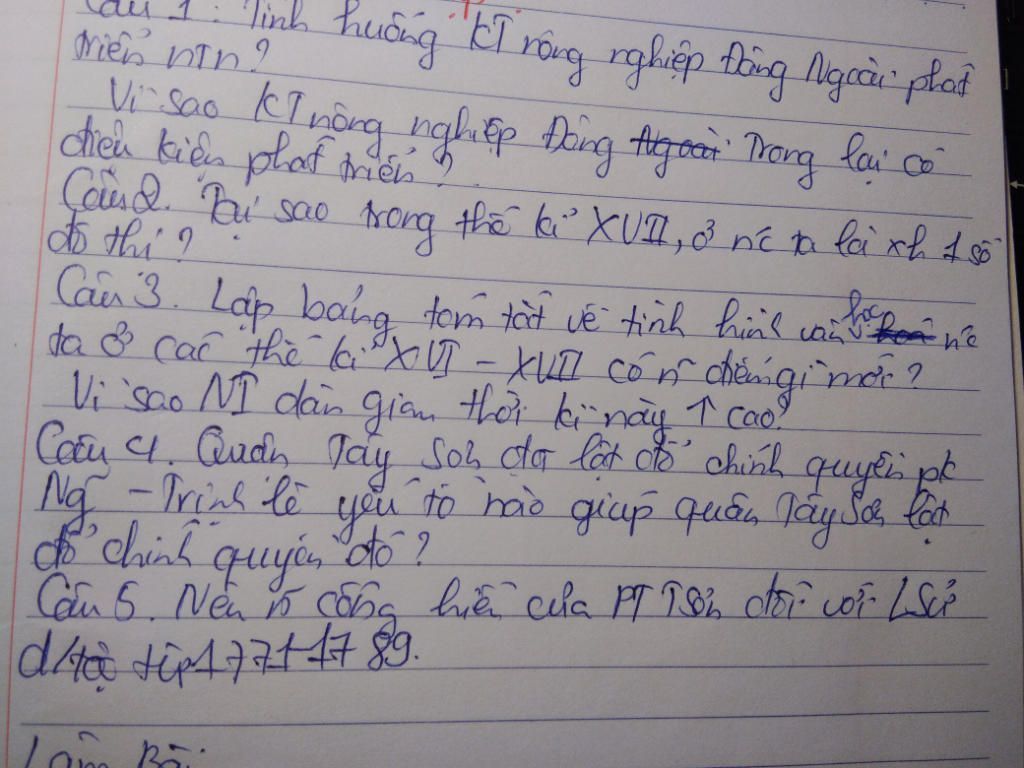 Câu 1. Tình huống KT nông nghiệp Đàng Ngoài phát
triển ntn?
Vì sao KT nông nghiệp Đàng Trong lại có
điều kiện phát triển?
Câu 2. Tại sao trong thế kỉ XVII, ở nc ta lại xh 1 số
đô thị?
Câu 3. Lập bảng tóm tắt về tình hình văn học nc
ta ở các thế kỉ XVI - XVII có n điểm gì mới?
Vì sao NT dân gian thời kì này ↑ cao?
Câu 4. Quân Tây Sơn đã lật đổ chính quyền pk
Ng - Trịnh lê yếu tố nào giúp quân Tây Sơn lật
đổ chính quyền đó?
Câu 5. Nêu rõ cống hiến của PT TSơn đối với LSử
d/tộc 1771-1789.
Làm Bài